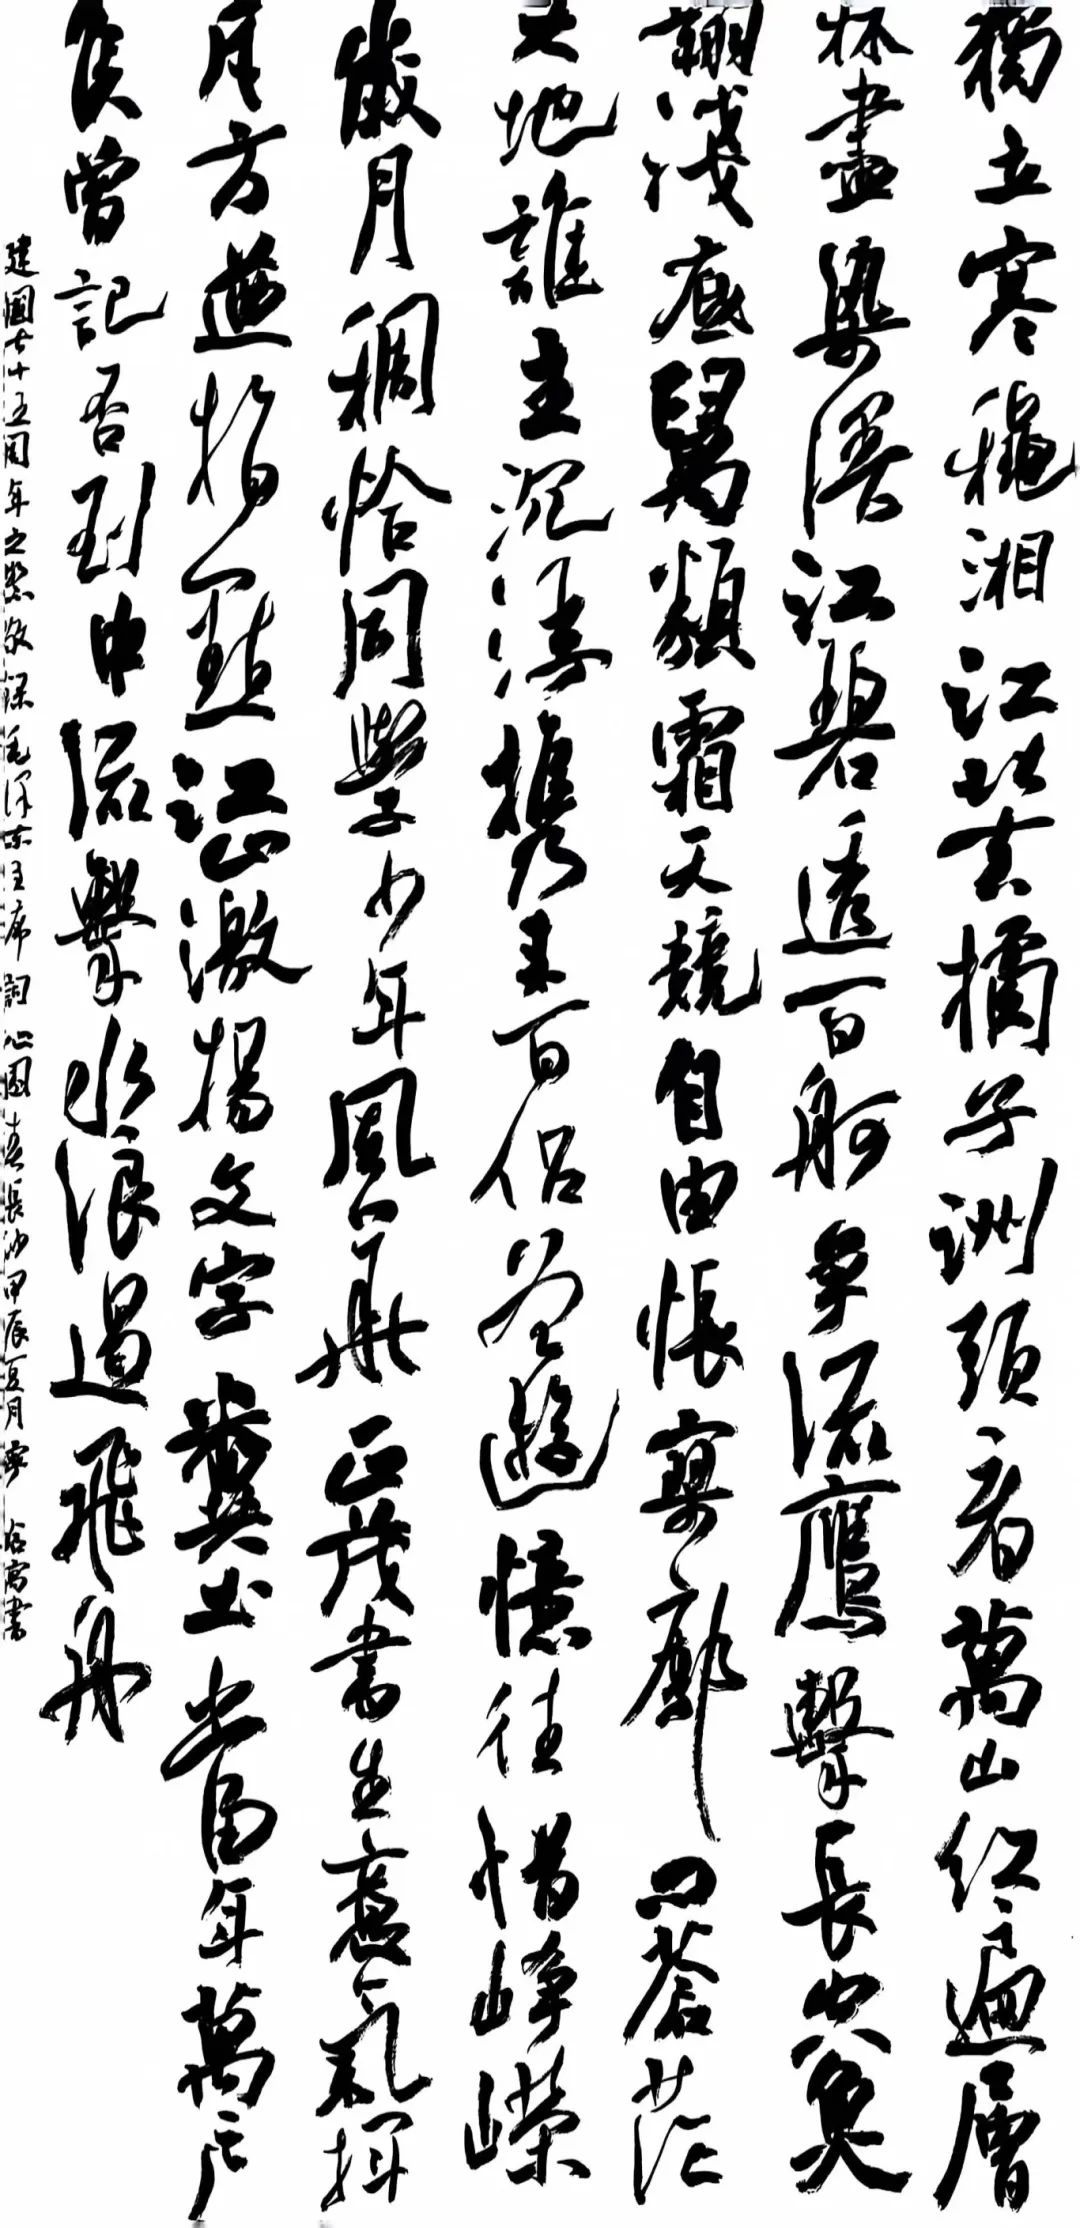 獨立寒穐湘江北去橘子洲頭看萬山红遍層
林盡染漫江碧透百舸争流鷹擊長空魚
翔淺底萬類霜天競自由悵寥廓問蒼茫
大地誰主沉浮携来百侣曾遊憶往惜峥嶸
歲月稠恰同學少年風華正茂書生意氣揮
斥方遒指點江山激揚文字糞土當年萬户
侯曾記否到中流擊水浪遏飛舟
建國七十五周年之際敬録毛泽东主席詞沁園春長沙甲辰夏月寧書